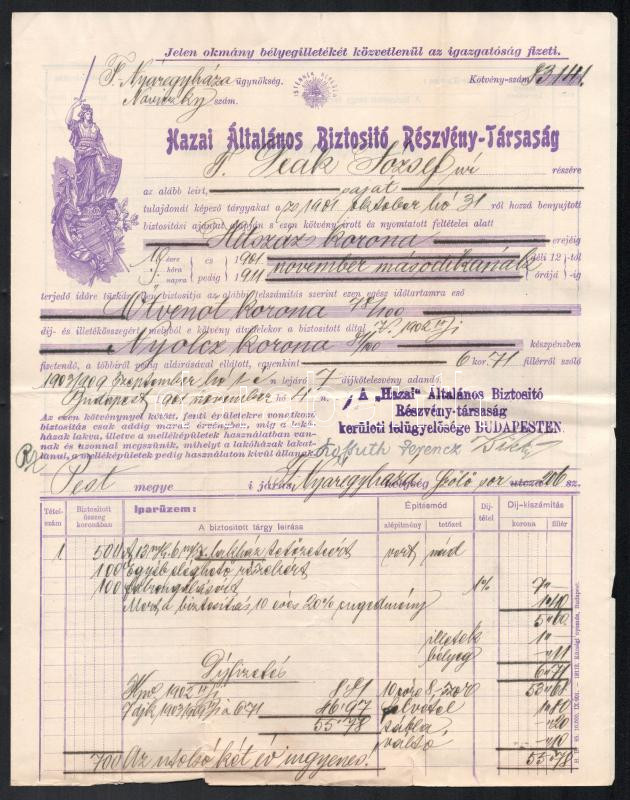 Jelen okmány bélyegilletékét közvetlenül az igazgatóság fizeti.
F. Nyáregyháza ügynökség.
szám.
ISTENNEK
Kötvény-szám
Hazai Általános Biztositó Részvény-Társaság
Deák József úr részére
az alább leirt, saját
tulajdonát képező tárgyakat a 1901 október hó 31 ről hozzá benyujtott
biztositási ajánlat alapján s ezen kötvény irott és nyomtatott feltételei alatt
Hétszáz korona erejéig
10 évre és 1901 november másodikának déli 12-től
hóra
napra pedig 1911 órájá -ig
terjedő időre tűzkár ellen biztositja az alábbi felszámitás szerint ezen egész időtartamra eső
Ötvenöt korona 78/100
díj- és illetékösszegért, melyből e kötvény átvételekor a biztositott által
Nyolcz korona készpénzben
fizetendő, a többiről pedig aláirásával ellátott, egyenkint 6 kor. 71 fillérről szóló
1903/1909 Szeptember hó 1-én lejáró 7 díjkötelezvény adandó.
Budapest, 1901 november hó 4. n.
Az ezen kötvénynyel kötött, fenti érületekre vonatkozó
biztositás csak addig marad érvényben, mig a lakó-
házak lakva, illetve a melléképületek használatban
vannak és azonnal megszünik, mihelyt a lakóházak lakat-
lanul, a melléképületek pedig használaton kivül állanak.
A „Hazai" Általános Biztositó
Részvény-társaság
kerületi felügyelősége BUDAPESTEN.
Kossuth Ferencz
Pest megye i járás, F. Nyáregyháza helység Szőlő sor utcza 206 sz.
Tétel-szám Biztositott összeg koronában Iparüzem: A biztositott tárgy leirása Épitésmód alépitmény tetőzet Díjtétel Díj-kiszámitás korona fillér
1 500 A 13 m/h. 6 m/sz. lakház tetőzetéért vert nád
100 Egyéb éghető részeiért
100 1% 7 —
Mert a biztositás 10 éves 20% engedmény 1 40
5 60
illeték 1
bélyeg 11
6 71
Díjfizetés
1902 8 81
1903/1909 à 6 71 46 97 felvétel 1 80
55 78 tábla 20
váltó 10
700 Az utolsó két év ingyenes. 55 78